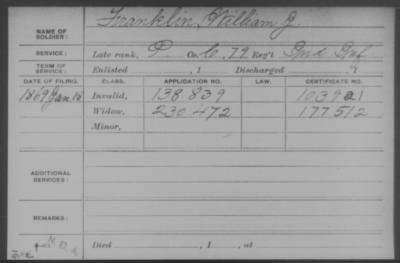 NAME OF SOLDIER: Franklin, William J.
SERVICE: Late rank, P Co. C, 79 Reg't Ind Inf
TERM OF SERVICE: Enlisted , 1 Discharged , 1
DATE OF FILING. CLASS. APPLICATION NO. LAW. CERTIFICATE NO.
1869 Jan 18 Invalid, 138 839 1039
Widow, 230 472 177 512
Minor,
ADDITIONAL SERVICES:
REMARKS:
Died , 1 , at